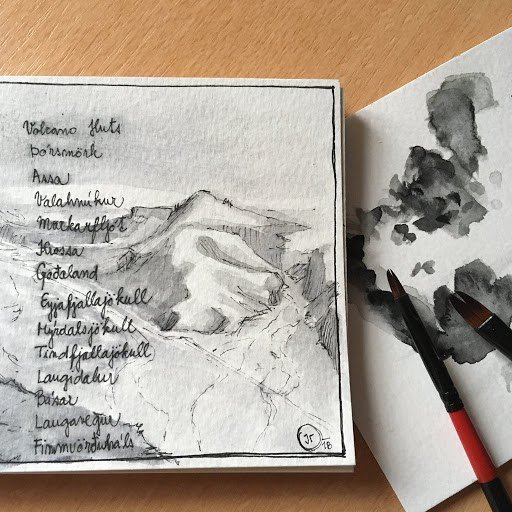 Volcano Huts
Þórsmörk
Assa
Valahnúkur
Markarfljót
Krossa
Goðaland
Eyjafjallajökull
Mýrdalsjökull
Tindfjallajökull
Langidalur
Básar
Laugavegur
Fimmvörðuháls
18